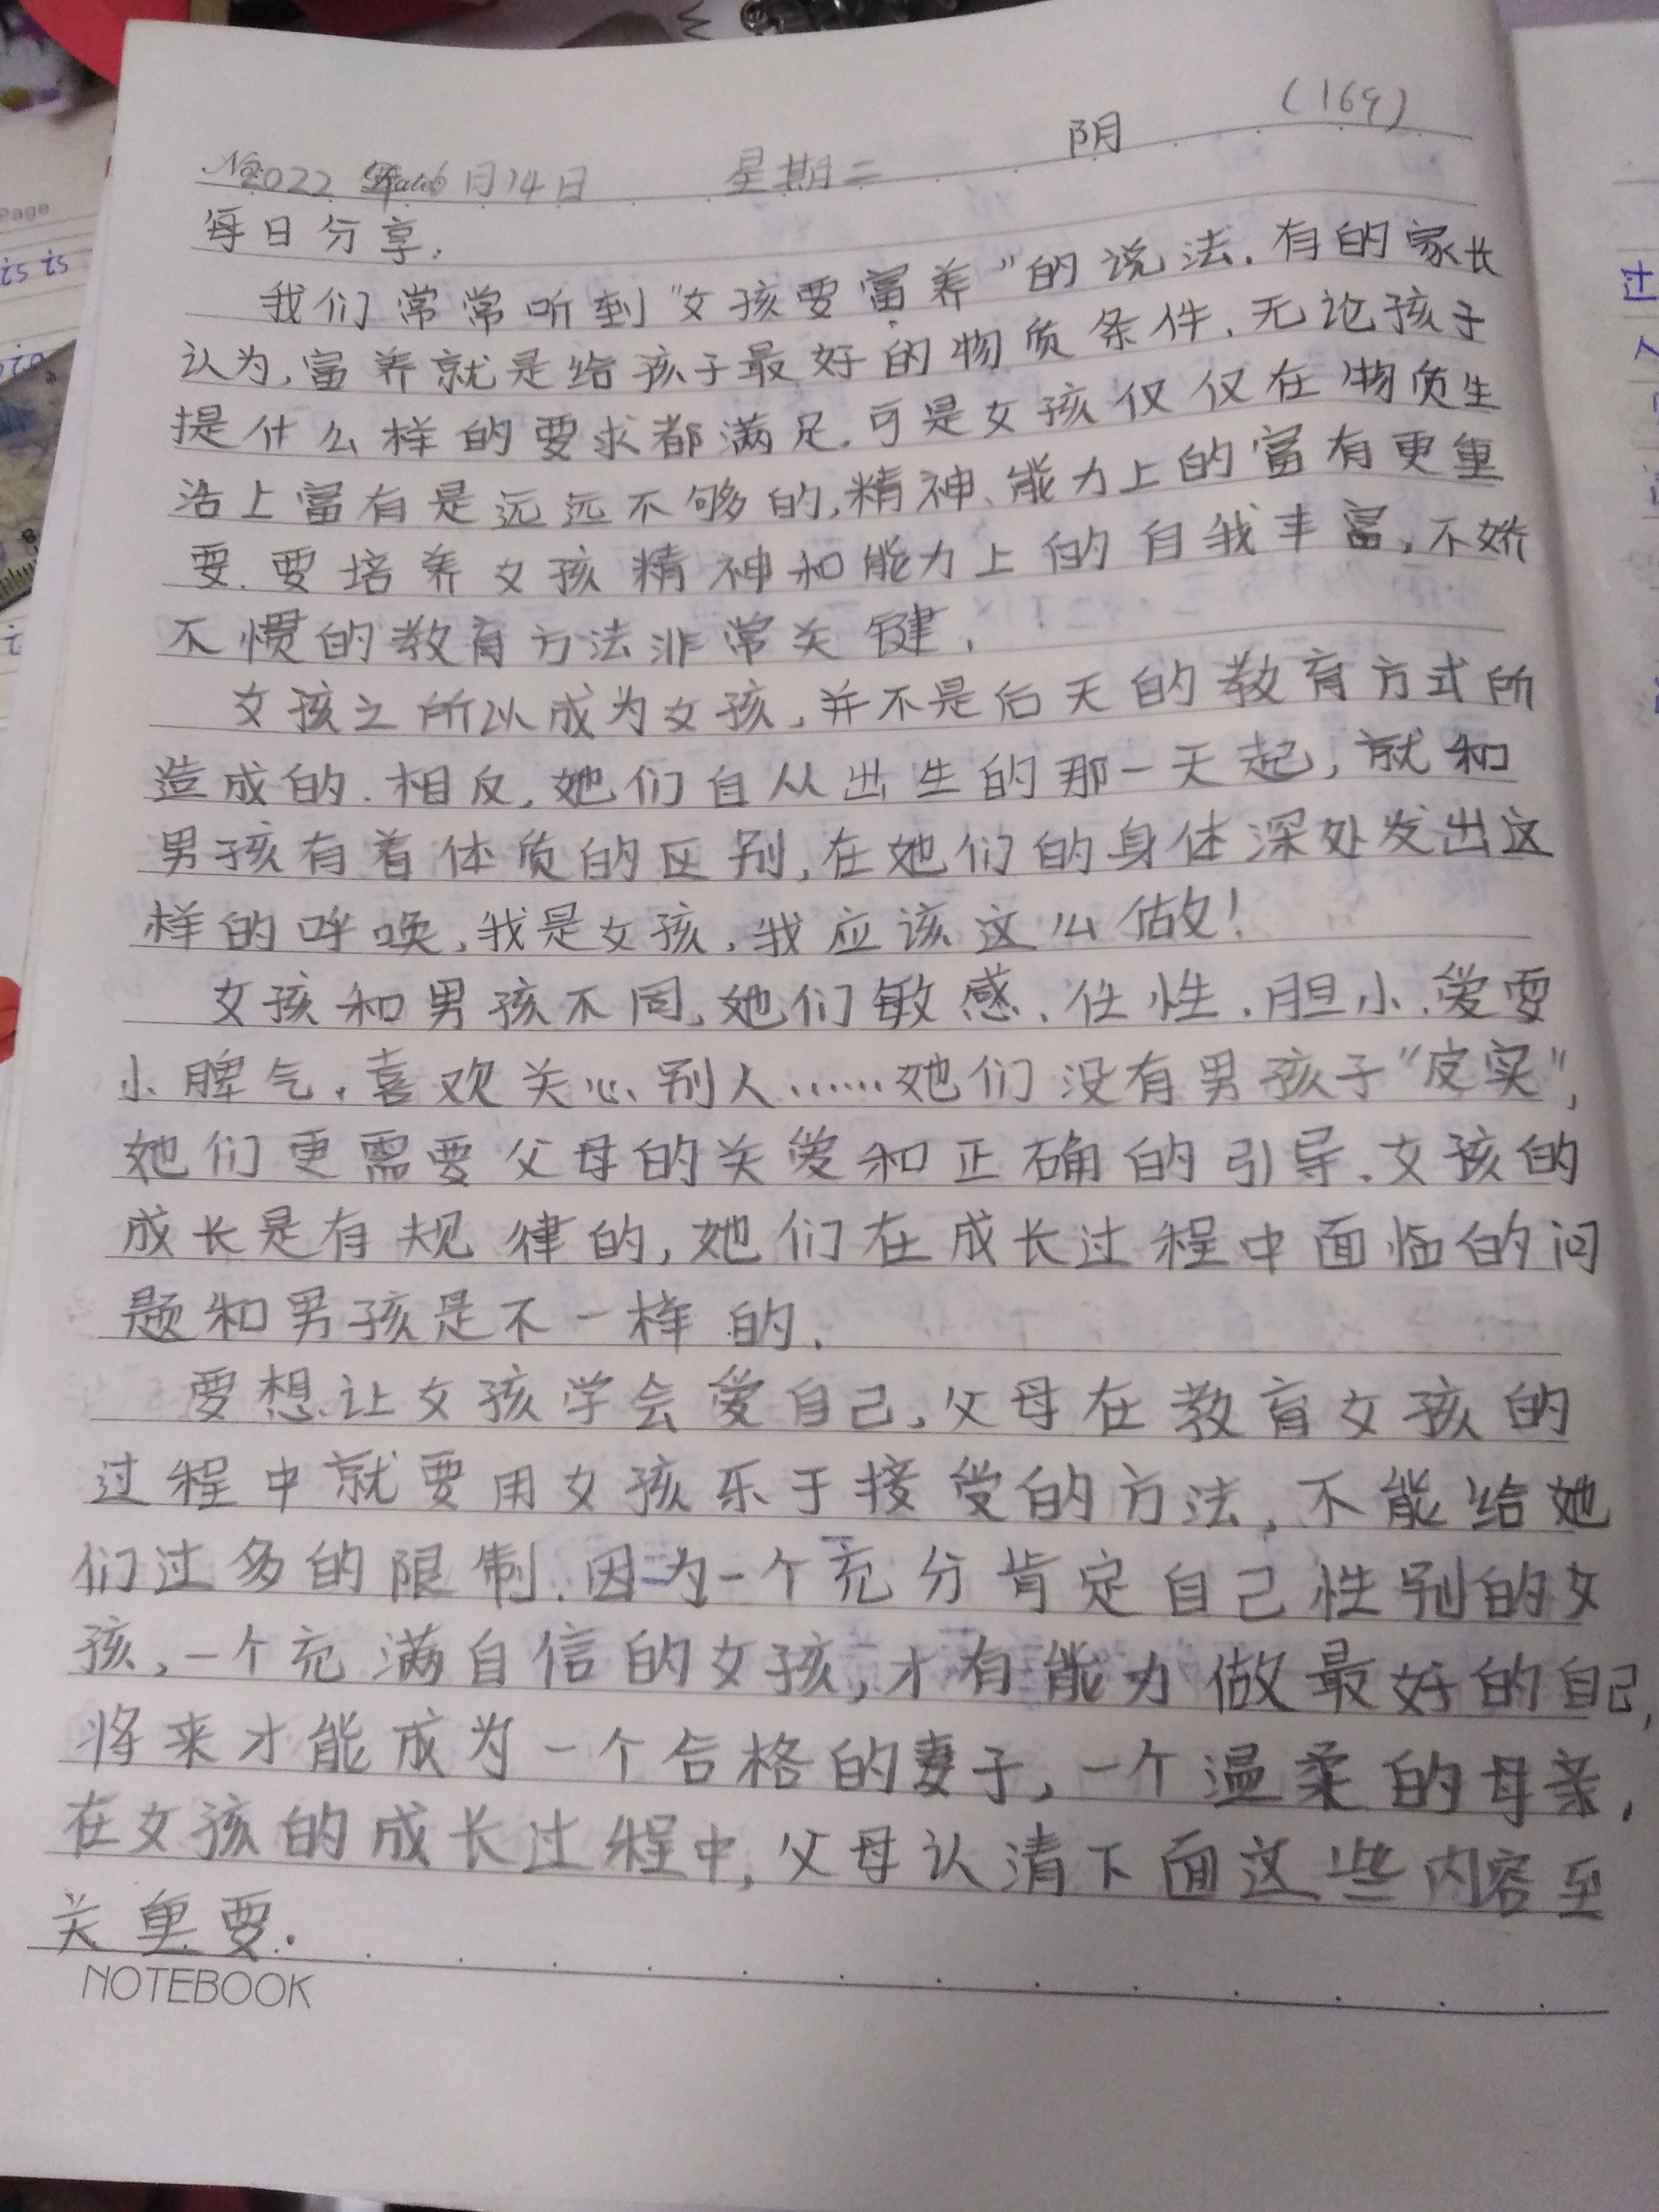 (169)
2022年6月14日 星期二 阴
每日分享.
我们常常听到"女孩要富养"的说法.有的家长
认为,富养就是给孩子最好的物质条件.无论孩子
提什么样的要求都满足.可是女孩仅仅在物质生
活上富有是远远不够的,精神、能力上的富有更重
要.要培养女孩精神和能力上的自我丰富,不娇
不惯的教育方法非常关键.
女孩之所以成为女孩,并不是后天的教育方式所
造成的.相反,她们自从出生的那一天起,就和
男孩有着体质的区别,在她们的身体深处发出这
样的呼唤,我是女孩,我应该这么做!
女孩和男孩不同,她们敏感、任性、胆小、爱耍
小脾气,喜欢关心别人……她们没有男孩子"皮实",
她们更需要父母的关爱和正确的引导.女孩的
成长是有规律的,她们在成长过程中面临的问
题和男孩是不一样的.
要想让女孩学会爱自己,父母在教育女孩的
过程中就要用女孩乐于接受的方法,不能给她
们过多的限制.因为一个充分肯定自己性别的女
孩,一个充满自信的女孩,才有能力做最好的自己,
将来才能成为一个合格的妻子,一个温柔的母亲,
在女孩的成长过程中,父母认清下面这些内容至
关重要.
NOTEBOOK
Page